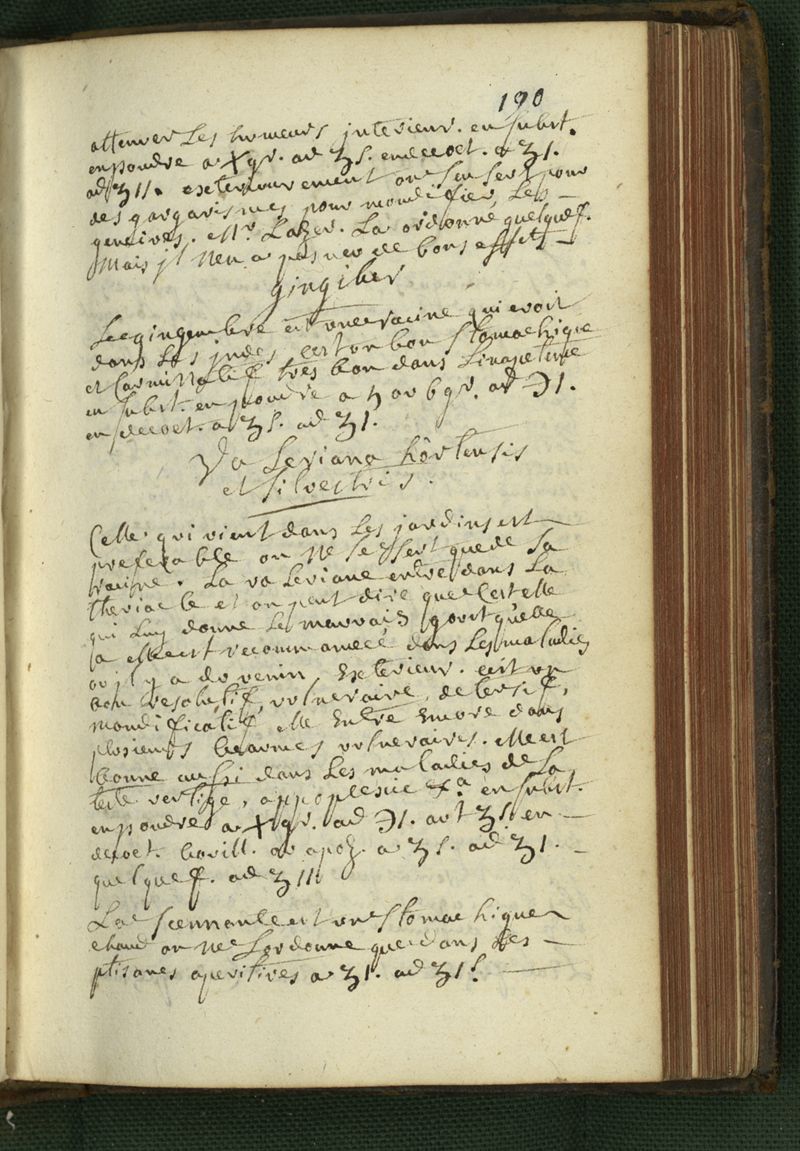 190
attenuer Les humeurs interieur. en subst.
en poudre a Xgr. ad ʒs. en decoct. a ʒ1.
ad ʒ11. exterieurement on s'en sert pour
des gargarismes pour mondifier Les
gencives. Mr. Lazer. La ordonné quelquef.
Mais jl n'en a pas veu de bons effets
gingiber
Le gingembre est une racine qui croit
dans Les jndes c'est un bon stomachique
et Carminatif tres bon dans L'inapetence
en subst. en poudre a 5 ou 6 gr. ad ℈1.
en decoct. a ʒs. ad ʒ1.
Valeriana hôrtensis
et silvestris.
Celle qui vient dans Les jardins est
preferable on ne se sert que de sa
racine. La valeriane entre dans La
theriacle et on peut dire que C'est elle
qui Luy donne Le mauvais goust qu'elle
a elle est recommancé dans Les maladies
ou jl y a du venin, Exterieur. c'est un
bon resolutif, vulneraire, detersif,
mondificatif elle Entre Encore dans
plusieurs baumes vulneraires. elle est
bonne aussi dans Les maladies de La
teste vertige, appoplexie &a. en subst.
en poudre a Xgr. ad ℈1. aut ʒs. en
decoct. bouill. ou apoz. a ʒs. ad ʒ1.
quelquef. ad ʒ11
La est un stomachique
chaud on ne L'ordonne que dans Les
ptisanes aperitives a ʒ1. ad ʒ1s.